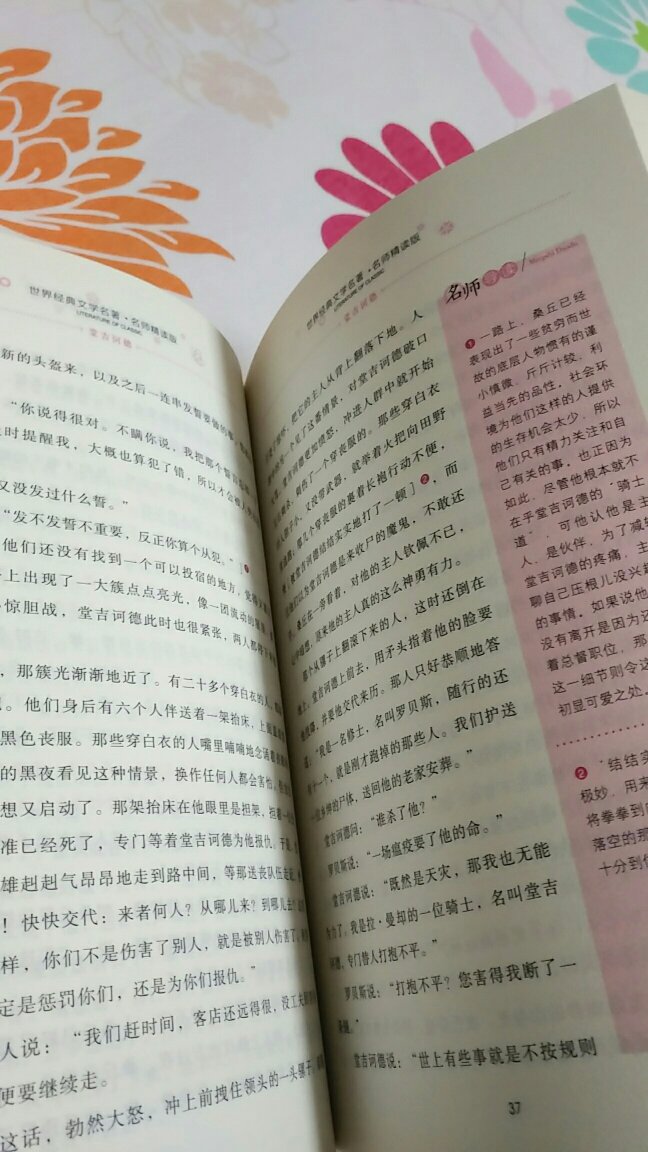 世界经典文学名著·名师精读版
LITERATURE OF CLASSIC
堂吉诃德
新的头盔来，以及之后一连串发誓要做的事
“你说得很对。不瞒你说，我把那个誓
时提醒我，大概也算犯了错，所以才会
又没发过什么誓。”
“发不发誓不重要，反正你算个从犯。”
他们还没有找到一个可以投宿的地方，
上出现了一大簇点点亮光，像一团流动的
惊胆战，堂吉诃德此时也很紧张，两人都
，那簇光渐渐地近了。有二十多个穿白衣的人，
。他们身后有六个人伴送着一架抬床，上面
黑色丧服。那些穿白衣的人嘴里喃喃地念
的黑夜看见这种情景，换作任何人都会害怕。
想又启动了。那架抬床在他眼里是担架，
准已经死了，专门等着堂吉诃德为他报仇。于是，
雄赳赳气昂昂地走到路中间，等那送丧队伍走近，
！快快交代：来者何人？从哪儿来？到哪儿去？
样，你们不是伤害了别人，就是被别人伤害了。
定是惩罚你们，还是为你们报仇。”
人说：“我们赶时间，客店还远得很，没工夫
便要继续走。
这话，勃然大怒，冲上前拽住领头的一头骡子，
世界经典文学名著·名师精读版
LITERATURE OF CLASSIC
堂吉诃德
把它的主人从背上翻落下地。人
见了这番情景，对堂吉诃德破口
堂吉诃德更加愤怒，冲进人群中就开始
伤了一个穿丧服的。那些穿白衣
胆子小，又没带武器，就举着火把向田野
那几个穿丧服的裹着长袍行动不便，
被堂吉诃德结结实实地打了一顿]❷，而
他们以为堂吉诃德是来收尸的魔鬼，不敢还
手。桑丘在一旁看着，对他的主人钦佩不已，
心中暗想，原来他的主人真的这么神勇有力。
那个从骡子上翻滚下来的人，这时还倒在
地上，堂吉诃德上前去，用矛头指着他的脸要
他投降，并要他交代来历。那人只好恭顺地答
道：“我是一名修士，名叫罗贝斯，随行的还
有十一个，就是刚才跑掉的那些人。我们护送
一位乡绅的尸体，送回他的老家安葬。”
堂吉诃德问：“谁杀了他？”
罗贝斯说：“一场瘟疫要了他的命。”
堂吉诃德说：“既然是天灾，那我也无能
为力了。我是拉·曼却的一位骑士，名叫堂吉
诃德，专门替人打抱不平。”
罗贝斯说：“打抱不平？您害得我断了一
条腿。”
堂吉诃德说：“世上有些事就是不按规则
37
名师
❶一路上，桑丘已经
表现出了一些贫穷而世
故的底层人物惯有的谨
小慎微、斤斤计较、利
益当先的品性，社会环
境为他们这样的人提供
的生存机会太少，所以
他们只有精力关注和自
己有关的事。也正因为
如此，尽管他根本就不
在乎堂吉诃德的“骑士
道”，可他认他是主
人，是伙伴，为了减轻
堂吉诃德的疼痛，主
聊自己压根儿没兴趣
的事情。如果说他
没有离开是因为还
着总督职位，那
这一细节则令这
初显可爱之处。
❷“结结实
极妙，用来
将拳拳到
落空的那
十分到位